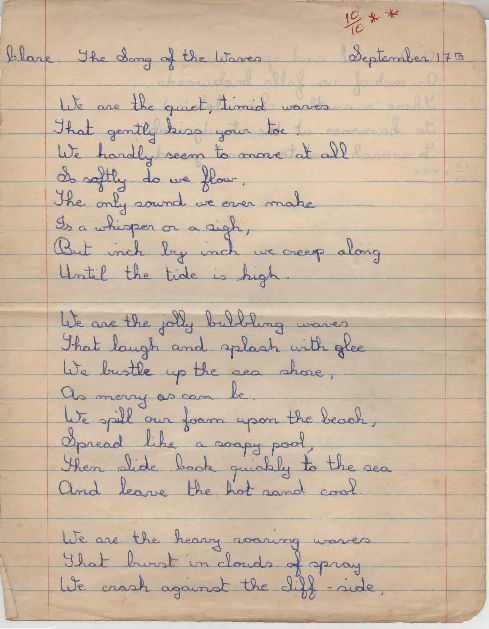 10/10 * *
Clare. The Song of the Waves September 17th
We are the quiet, timid waves
That gently kiss your toe
We hardly seem to move at all
So softly do we flow,
The only sound we ever make
Is a whisper or a sigh,
But inch by inch we creep along
Until the tide is high.
We are the jolly bubbling waves
That laugh and splash with glee
We bustle up the sea shore,
As merry as can be.
We spill our foam upon the beach,
Spread like a soapy pool,
Then slide back quickly to the sea
And leave the hot sand cool.
We are the heavy roaring waves
That burst in clouds of spray
We crash against the cliff-side,